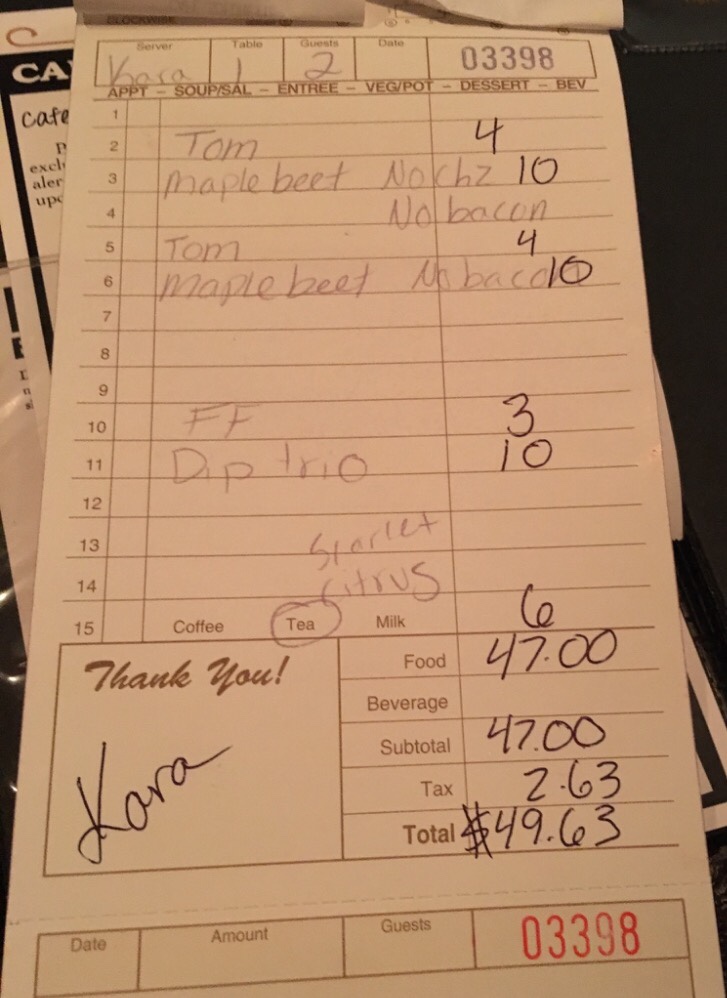 Server Table Guests Date
Kara 1 2 03398
APPT - SOUP/SAL - ENTREE - VEG/POT - DESSERT - BEV
1
2 Tom 4
3 maple beet No chz 10
4 No bacon
5 Tom 4
6 maple beet No bacon 10
7
8
9
10 FF 3
11 Dip trio 10
12
13 Scarlet
14 Citrus
15 Coffee Tea Milk 6
Thank You!
Kara
Food 47.00
Beverage
Subtotal 47.00
Tax 2.63
Total $49.63
Date Amount Guests 03398
CA
Cafe
P
excl
aler
upc